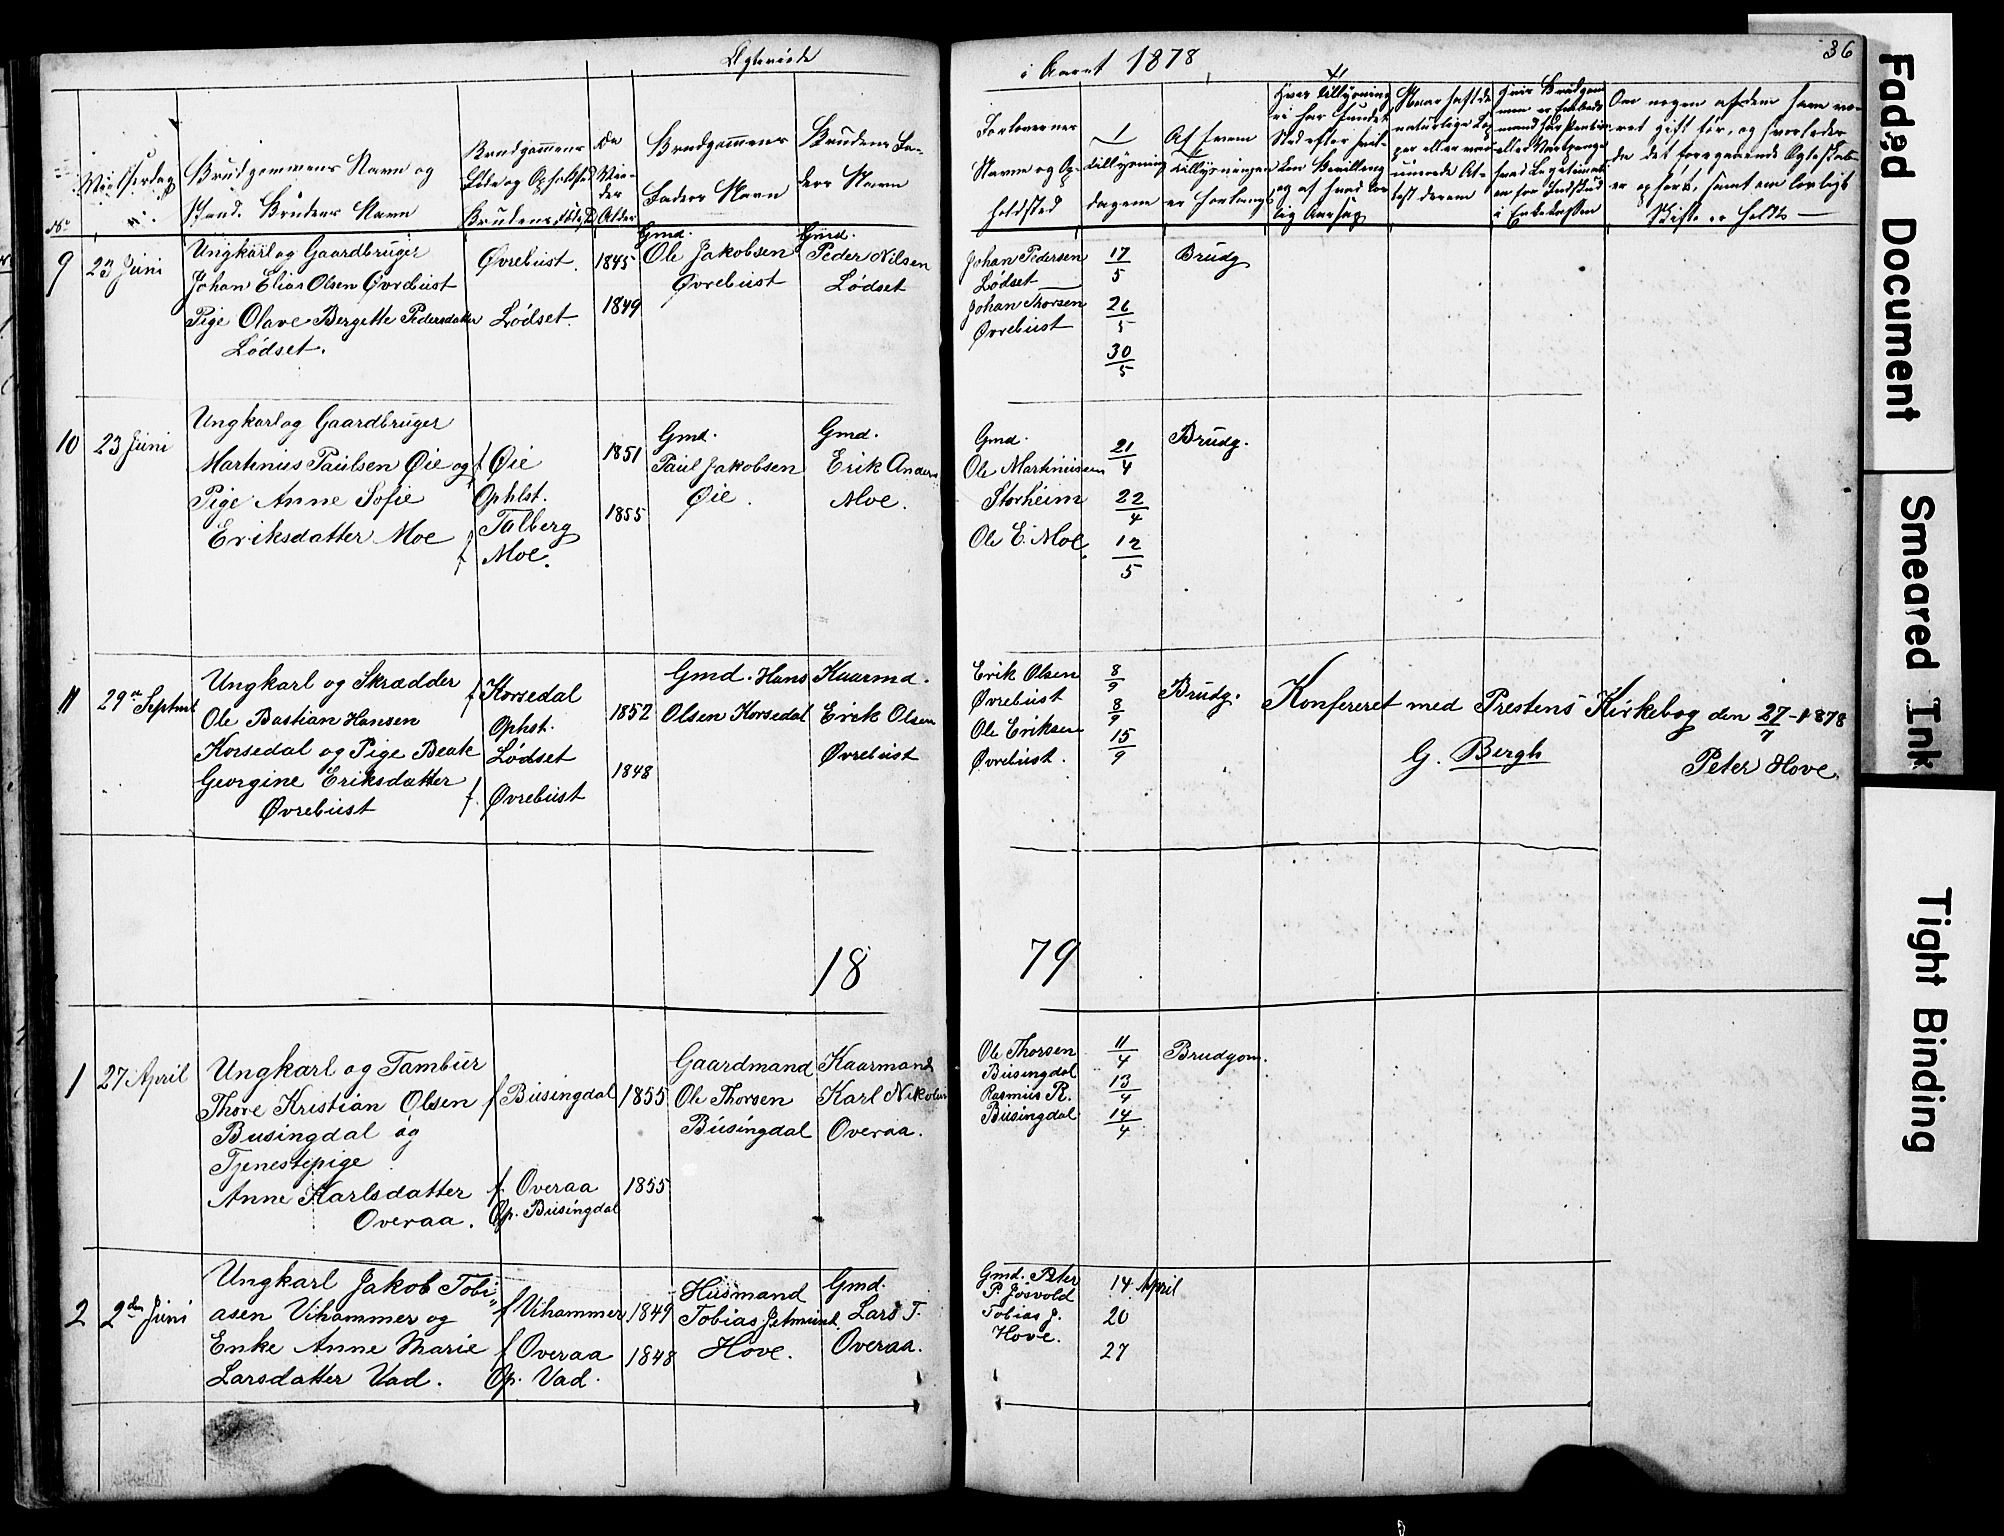 Ægteviede
i Aaret 1878
36
No
Vielsesdag
Brudgommens Navn og
Stand. Brudens Navn
Brudgommens
Føde og Opholdsted
Brudens
De
Vie-
des
Alder
Brudgommens
Faders Navn
Brudens Fa-
ders Navn
Forlovernes
Navne og Op-
holdsted
Tillysnings
dagene
Af hvem
Tillysningen
er forlangt
Om nogen af dem have væ-
ret gift før, og hvorledes
da det foregaaende Ægteskab
er ophørt, samt om lovligt
Skifte er holdt
9
23 Juni
Ungkarl og Gaardbruger
Johan Elias Olsen Øvrebust
Pige Olave Bergette Pedersdatter
Lødset.
Øvrebust.
Lødset.
1845
1849
Gmd.
Ole Jakobsen
Øvrebust
Gmd.
Peder Nilsen
Lødset
Johan Pedersen
Lødset
Johan Thorsen
Øvrebust
17/5
26/5
30/5
Brudg
10
23 Juni
Ungkarl og Gaardbruger
Martinus Paulsen Øie og
Pige Anne Sofie
Eriksdatter Moe
f Øie
Ophlst.
Talberg
f Moe.
1851
1855
Gmd.
Paul Jakobsen
Øie.
Gmd.
Erik Anders
Moe.
Gmd.
Ole Martinusen
Storheim
Ole E. Moe.
21/4
22/4
12/5
Brudg.
11
29de Septmb
Ungkarl og Skrædder
Ole Bastian Hansen
Korsedal og Pige Beate
Georgine Eriksdatter
Øvrebust
f Korsedal
Ophst.
Lødset
f. Øvrebust
1852
1848
Gmd. Hans
Olsen Korsedal
Kaarmd.
Erik Olsen
Øvrebust
Erik Olsen
Øvrebust
Ole Eriksen
Øvrebust.
8/9
8/9
15/9
Brudg.
Konfereret med Prestens Kirkebog den 27/7-1878
G. Bergh
Peter Hove
18
79
1
27 April
Ungkarl og Tambur
Thore Kristian Olsen
Busingdal og
Tjenestepige
Anne Karlsdatter
Overaa.
f Busingdal
f. Overaa
Op. Busingdal
1855
1855
Gaardmand
Ole Thorsen
Busingdal
Kaarmand
Karl Nikolai
Overaa.
Ole Thorsen
Busingdal
Rasmus R.
Busingdal
11/4
13/4
14/4
Brudgom.
2
2den Juni
Ungkarl Jakob Tobi-
asen Vihammer og
Enke Anne Marie
Larsdatter Vad.
f Vihammer
f Overaa
Op. Vad.
1849
1848
Husmand
Tobias Jetmund.
Hove.
Gmd.
Lars T.
Overaa.
Gmd. Peter
P. Josvold
Tobias J.
Hove.
14 April
20
27
Faded Document
Smeared Ink
Tight Binding